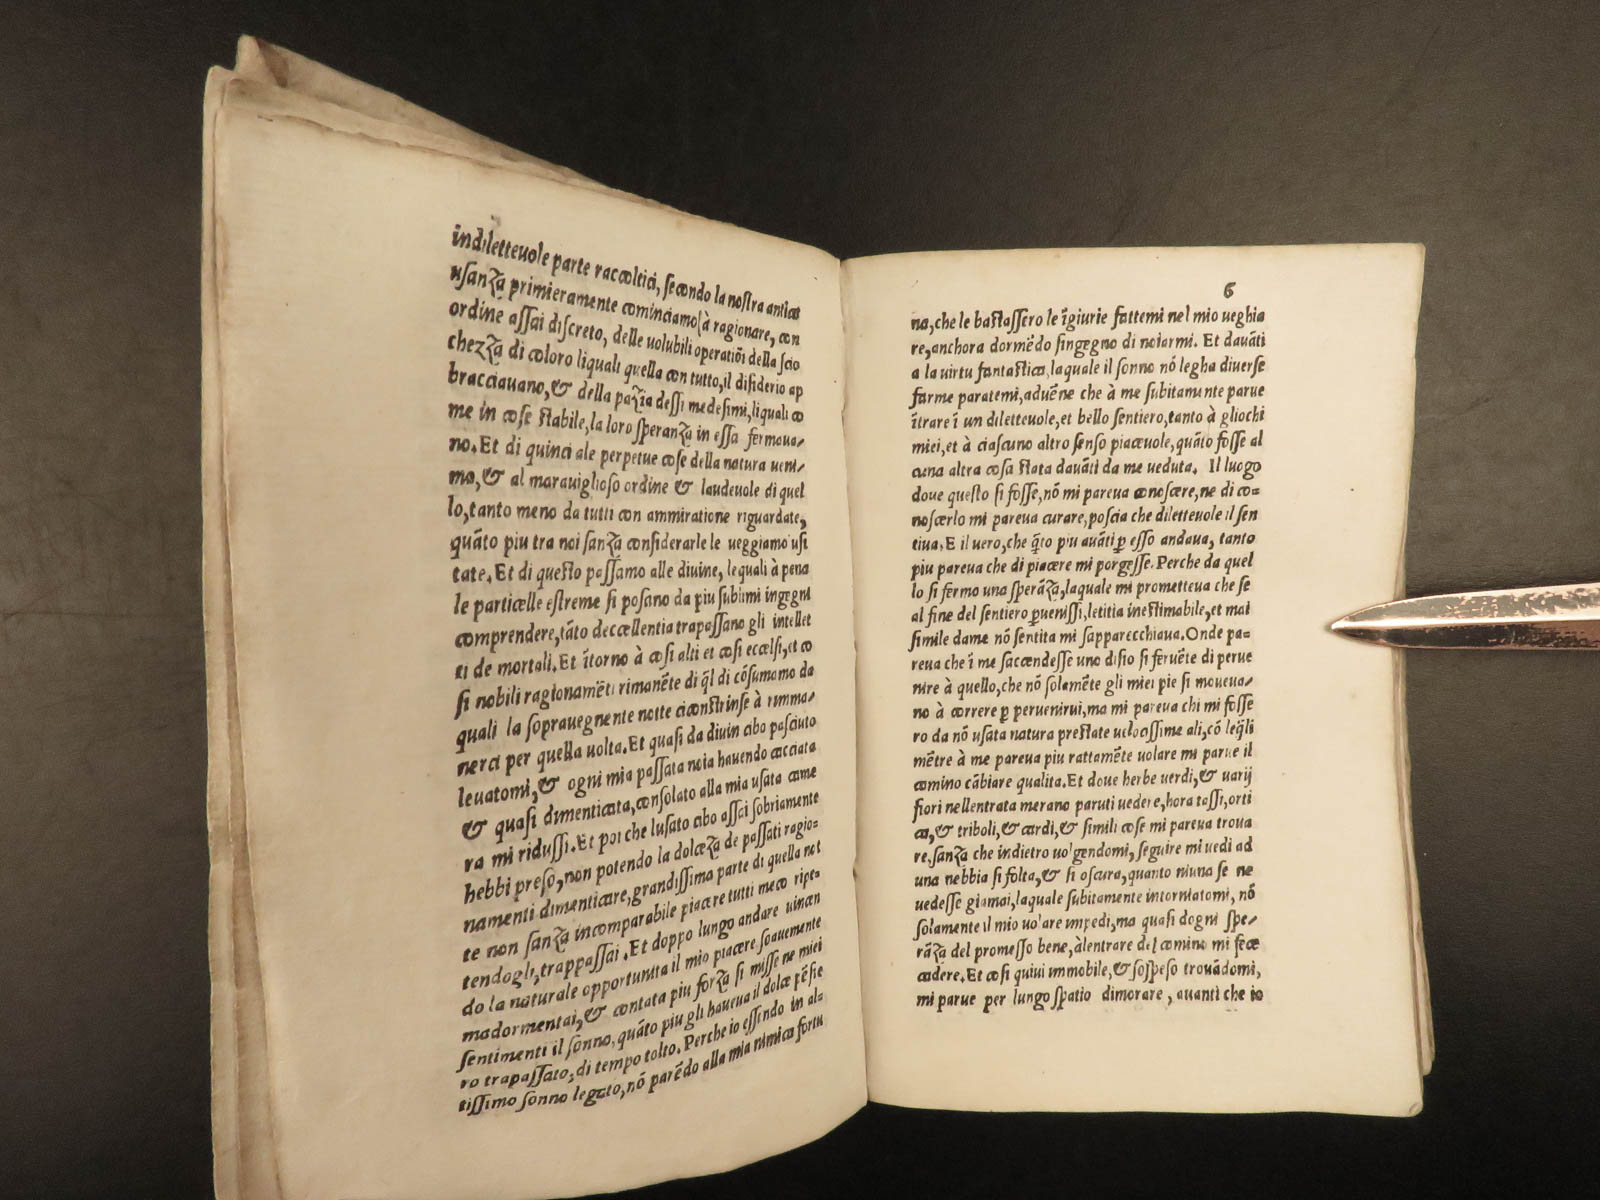 indiletteuole parte raccoltici, secondo la nostra antica
usanza primieramente cominciamo à ragionare, con
ordine assai discreto, delle uolubili operatiõi della scio
chezza di coloro liquali quella con tutto, il disiderio ap
bracciauano, & della pazia dessi medesimi, liquali co
me in cose stabile, la loro speranza in essa fermoua/
no. Et di quinci ale perpetue cose della natura ueni/
mo, & al marauiglioso ordine & laudeuole di quel
lo, tanto meno da tutti con ammiratione riguardate,
quãto piu tra noi sanza considerarle le ueggiamo usi
tate. Et di questo passamo alle diuine, lequali à pena
le particelle estreme si posano da piu sublimi ingegni
comprendere, tãto deccellentia trapassano gli intellet
ti de mortali. Et ĩtorno à cosi alti et cosi eccelsi, et co
si nobili ragionamẽti rimanẽte di q̃l di cõsumamo da
quali la soprauegnente notte ci constrinse à rimma/
nerci per quella uolta. Et quasi da diuin cibo pasciuto
leuatomi, & ogni mia passata noia hauendo cacciata
& quasi dimenticata, consolato alla mia usata came
ra mi ridussi. Et poi che lusato cibo assai sobriamente
hebbi preso, non potendo la dolceza de passati ragio-
namenti dimenticare, grandissima parte di quella not
te non sanza incomparabile piacere tutti meco ripe-
tendogli, trappassai. Et doppo lungo andare uincen
do la naturale opportunita il mio piacere soauemente
madormentai, & contata piu forza si misse ne miei
sentimenti il sonno, quãto piu gli haueua il dolce pẽsie
ro trapassato, di tempo tolto. Perche io essendo in al-
tissimo sonno legato, nõ parẽdo alla mia nimica fortu
6
na, che le bastassero le ĩgiurie fattemi nel mio ueghia
re, anchora dormẽdo singegno di noiarmi. Et dauãti
a la uirtu fantastica, laquale il sonno nõ legha diuerse
forme paratemi, aduẽne che à me subitamente parue
ĩtrare ĩ un diletteuole, et bello sentiero, tanto à gliochi
miei, et à ciascuno altro senso piaceuole, quãto fosse al
cuna altra cosa stata dauãti da me ueduta. Il luogo
doue questo si fosse, nõ mi pareua conoscere, ne di co-
noscerlo mi pareua curare, poscia che diletteuole il sen
tiua. E il uero, che q̃to piu auãti p̱ esso andaua, tanto
piu pareua che di piacere mi porgesse. Perche da quel
lo si fermo una sperãza, laquale mi prometteua che se
al fine del sentiero p̱uenissi, letitia inestimabile, et mai
simile dame nõ sentita mi sapparecchiaua. Onde pa-
reua che ĩ me saccendesse uno disio si feruẽte di perue
nire à quello, che nõ solamẽte gli miei pie si moueua/
no à correre p̱ peruenirui, ma mi pareua chi mi fosse
ro da nõ usata natura prestate uelocissime ali, cõ leq̃li
mẽtre à me pareua piu rattamẽte uolare mi parue il
camino cãbiare qualita. Et doue herbe uerdi, & uarij
fiori nellentrata merano paruti uedere, hora tassi, orti
ca, & triboli, & cardi, & simili cose mi pareua troua
re. sanza che indietro uolgendomi, seguire mi uedi ad
una nebbia si folta, & si oscura, quanto niuna se ne
uedesse giamai, laquale subitamente intorniatomi, nõ
solamente il mio uolare impedi, ma quasi dogni spe/
rãza del promesso bene, àlentrare del camino mi fece
cadere. Et cosi quiui immobile, & sospeso trouãdomi,
mi parue per lungo spatio dimorare, auanti che io